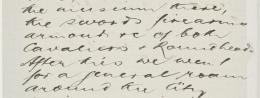 the museum there,
the swords firearms
armour &c of both
Cavaliers & Roundheads
After this we went
for a general roam
around the city